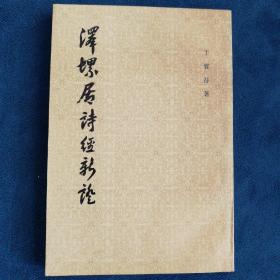 澤螺居詩經新證
于省吾著